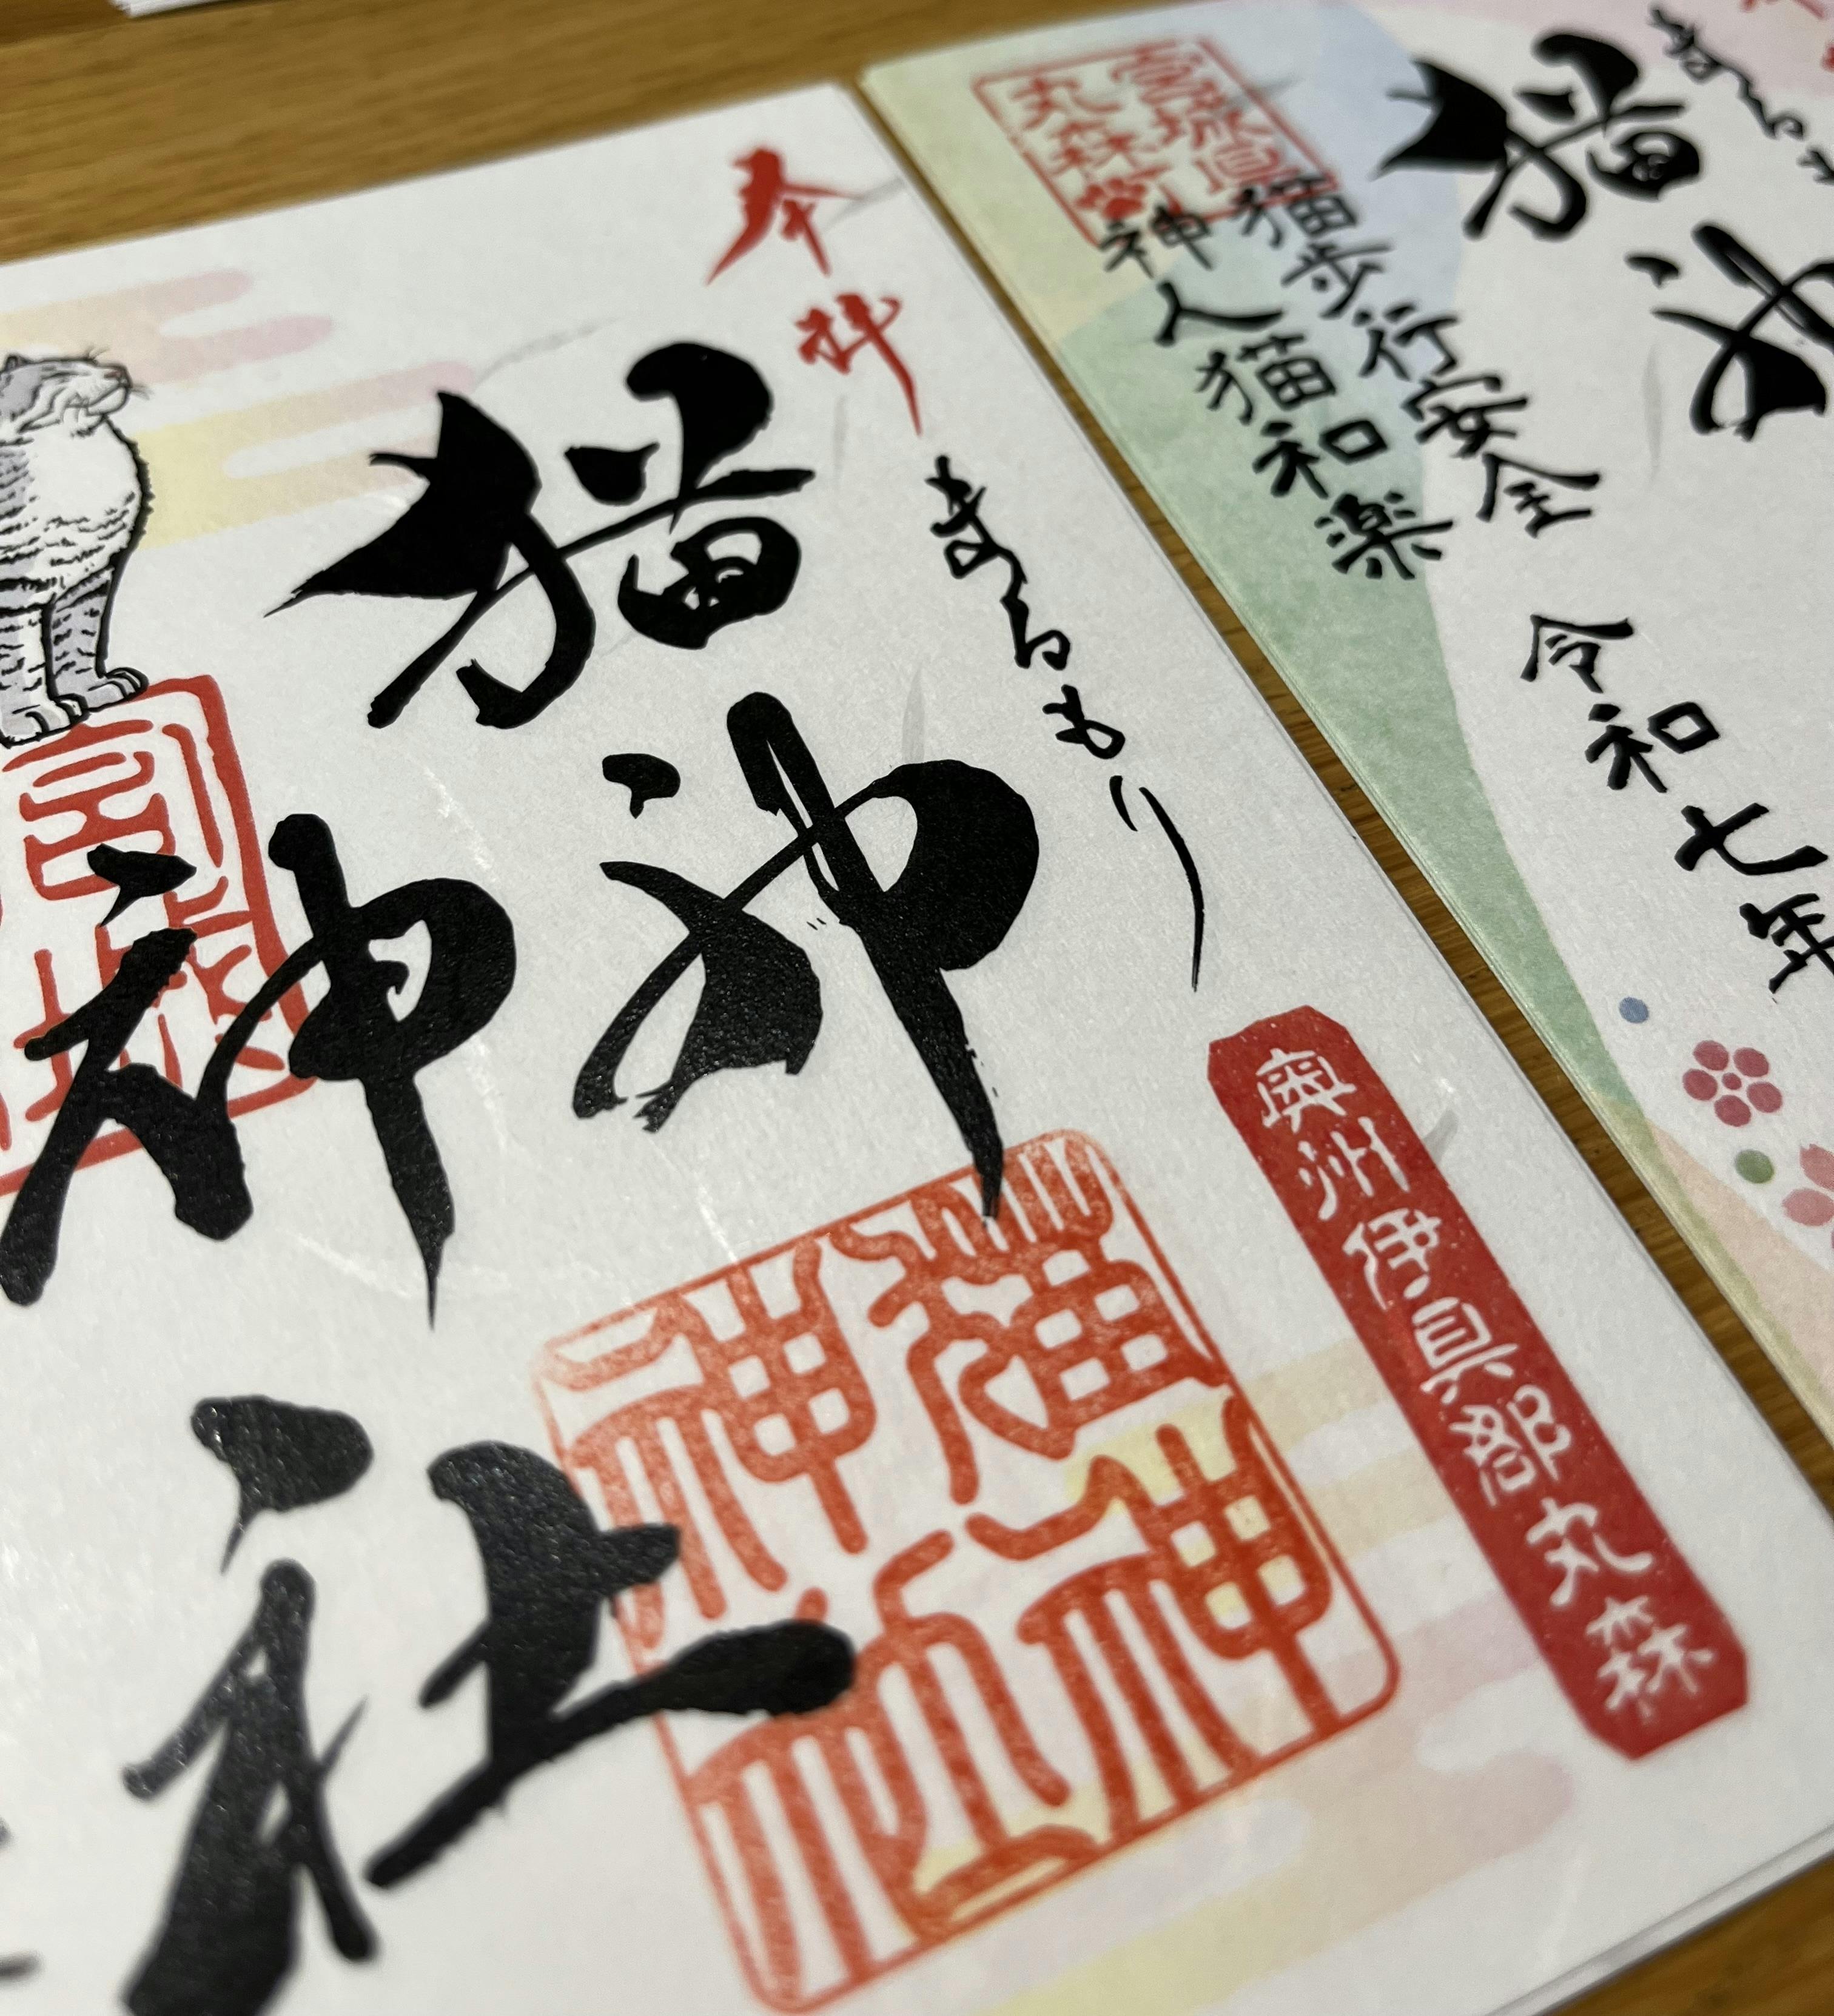 奉拝
まるもり
猫神
神社
奥州伊具郡丸森
猫神神社
宮城
まるもり
猫神
宮城県
丸森町
猫歩行安全
神人猫和楽
令和七年